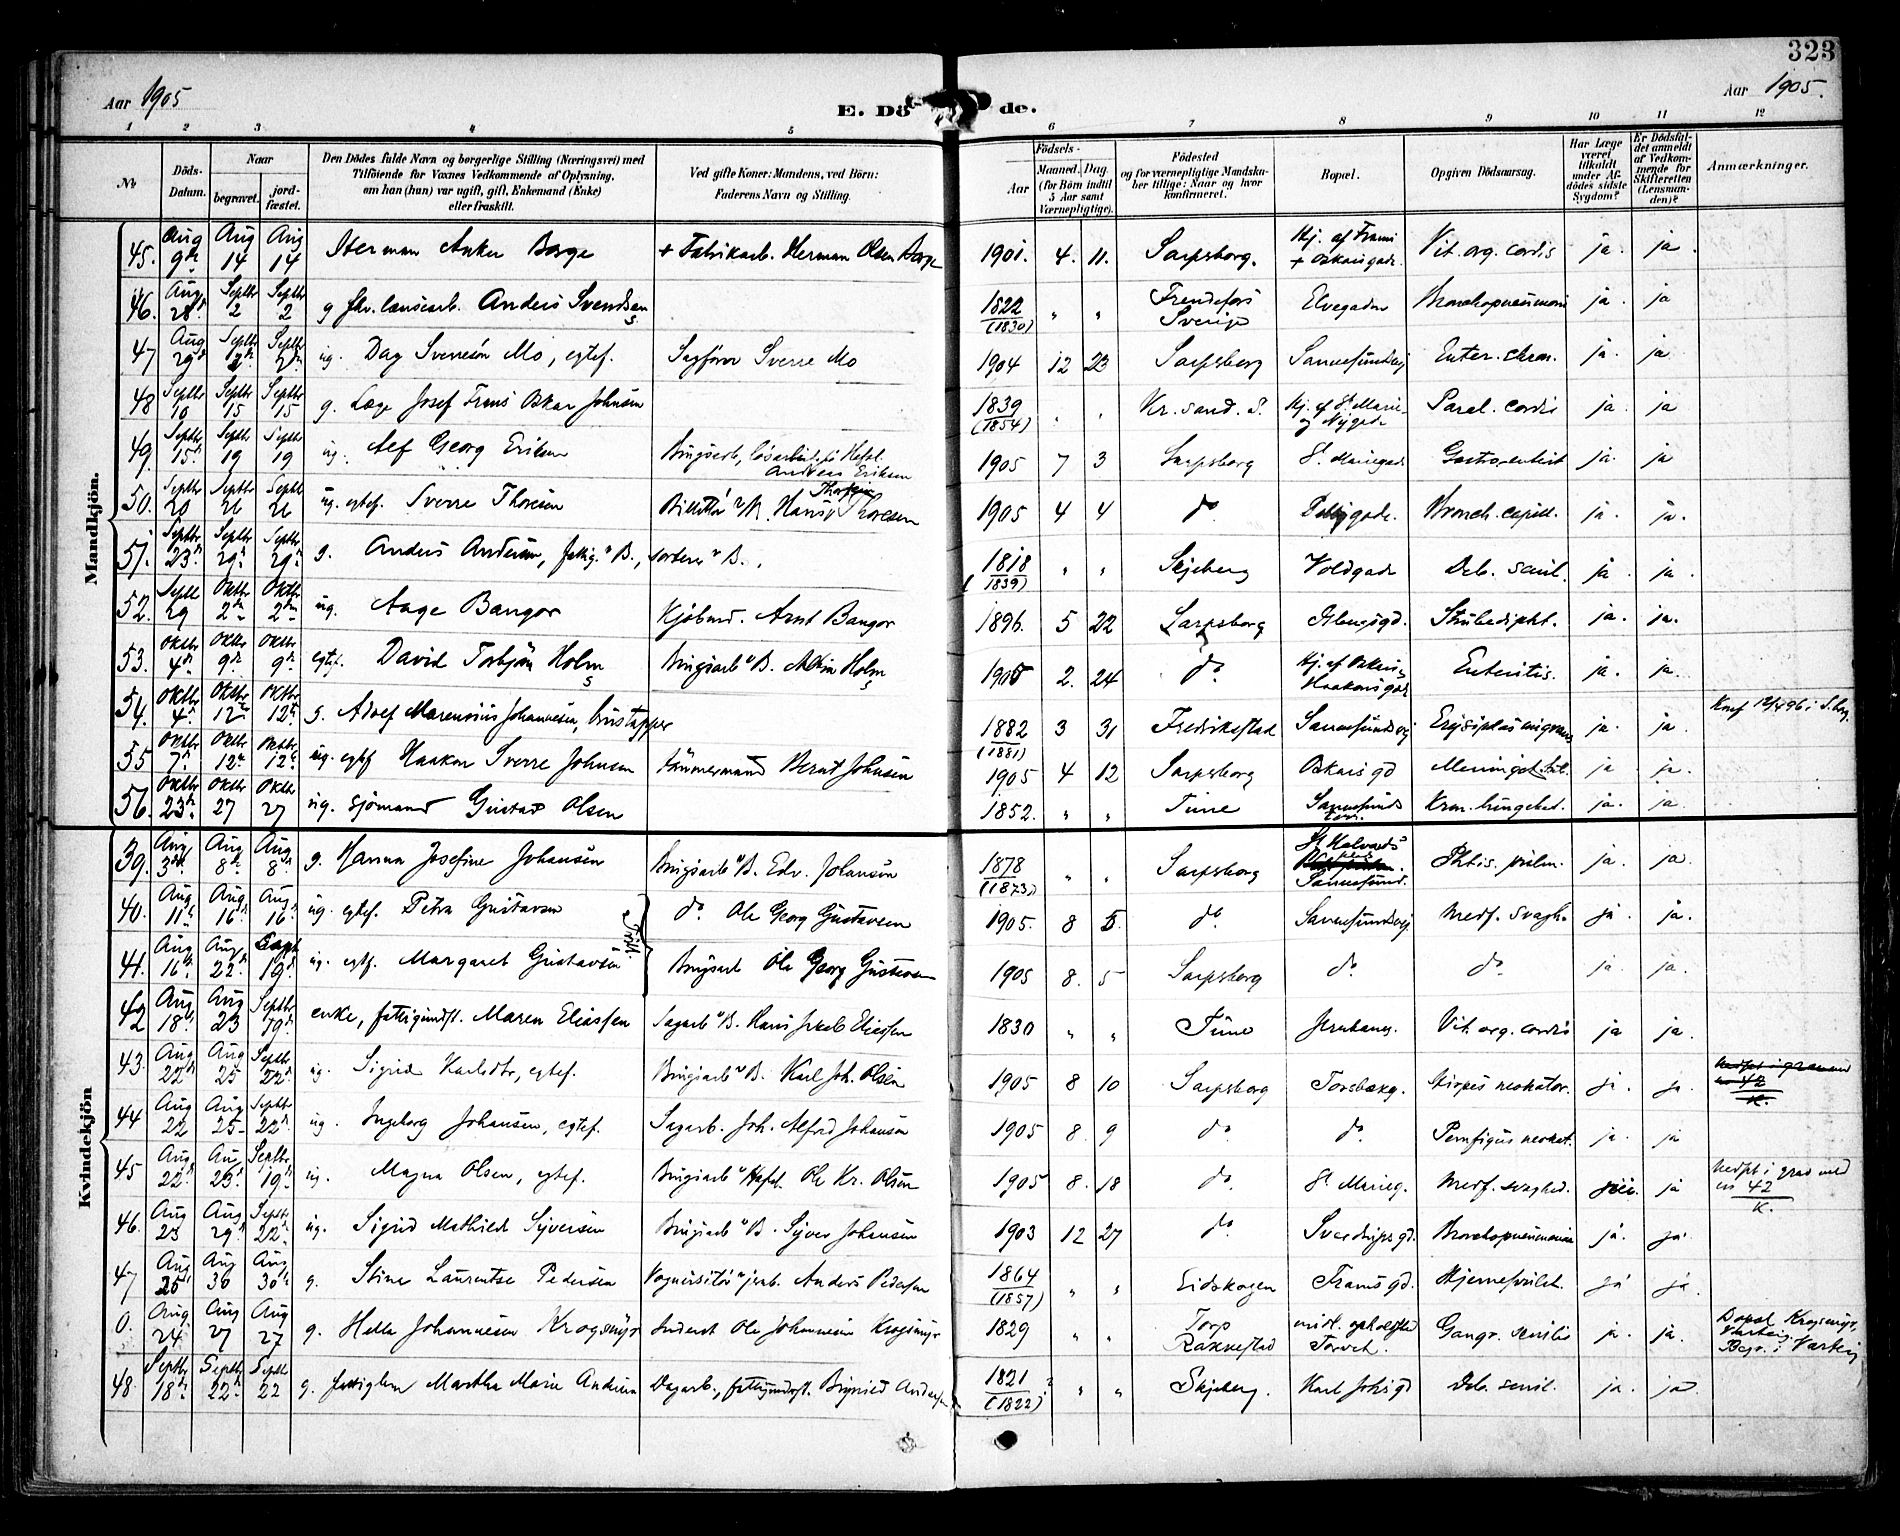 323
Aar 1905
E. Dö de.
Aar 1905.
1 2 3 4 5 6 7 8 9 10 11 12
No
Döds-Datum.
Naar
begravet.
jord-fæstet.
Den Dödes fulde Navn og borgerlige Stilling (Næringsvei) med
Tilföiende for Voxnes Vedkommende af Oplysning,
om han (hun) var ugift, gift, Enkemand (Enke)
eller fraskilt.
Ved gifte Koner: Mandens, ved Börn:
Faderens Navn og Stilling.
Födsels-
Aar
Maaned. Dag.
(for Börn indtil
5 Aar samt
Værnepligtige).
Födested
og for værnepligtige Mandska-
ber tillige: Naar og hvor
konfirmeret.
Bopæl.
Opgiven Dödsaarsag.
Har Læge
været
tilkaldt
under Af-
dödes sidste
Sygdom?
Er Dödsfal-
det anmeldt
af Vedkom-
mende for
Skifteretten
(Lensman-
den)?
Anmærkninger.
Mandkjön.
45. Aug 9de Aug 14 Aug 14 Herman Anker Borge + Fabrikarb. Herman Olsen Borge 1901. 4. 11. Sarpsborg. Hj. af Frams + Oskarsgade. Vit. org. cordis ja. ja.
46. Aug 28 Septbr 2 Septbr 2 g fhv. lænsearb. Anders Svendsen 1822 (1830) " " Sverige Elvegaden Bronchopneumoni ja. ja
47 Aug 29 Septbr 2 Septbr 2 ug. Dag Sverresön Mo, egtef. Sagförer Sverre Mo 1904 12 23 Sarpsborg Sannesundsvej Enter. chron. ja. ja
48 Septbr 10 Septbr 15 Septbr 15 g. Læge Josef Frans Oskar Johnsen 1839 (1854) " " Kr.sand. S. Hj. af St. Marie- og Nygade Paral. cordis ja. ja
49. Septbr 15 Septbr 19 Septbr 19 ug. Alf Georg Eriksen Brugsarb., lösarbeid. på Hafsl. Andreas Eriksen 1905 7 3 Sarpsborg St. Mariegade Gastroenterit ja. ja
50. Septbr 20 Septbr 26 Septbr 26 ug. egtef. Sverre Thoresen Hans Thoresen 1905 4 4 do Bronch. capill. ja. ja.
51. Septbr 23 Septbr 29 Septbr 29 g. Anders Andersen, fattig. v B., sorterer v B. 1818 (1839) " " Skjeberg Voldgade Deb. senil. ja. ja.
52. Septbr 29 Oktbr 2den Oktbr 2den ug. Aage Bangor Kjöbmd. Arnt Bangor 1896. 5 22 Sarpsborg Glengsgd. Strubedipht. ja. ja.
53. Oktbr 4de Oktbr 9de Oktbr 9de egtef. David Torbjörn Holm Brugsarb v B. Holm 1905 2. 24 do. Hj. af Oskars- Haakonsgade Enteritis. ja. ja.
54. Oktbr 4de Oktbr 12te Oktbr 12te g. Adolf Marensius Johannesen, brustapper 1882 (1881) 3 31 Fredrikstad Sannesundsvej Erysipelas migrans ja. ja. Konf 96 i S.borg.
55 Oktbr 7de Oktbr 12te Oktbr 12te ug. egtef Haakon Sverre Johnsen tömmermand Bernt Johnsen 1905 4 12 Sarpsborg Oskars gd ja ja.
56. Oktbr 23de Oktbr 27 Oktbr 27 ug. sjömand Gustav Olsen 1852. " " Tune Sannesunds Kron. lungebet. ja. ja.
Kvindekjön
39. Aug 3die Aug 8de Aug 8de g. Hanna Josefine Johansen Brugsarb v B. Edv. Johansen 1878 (1873) " " Sarpsborg St Halvards Sannesund. Phtis. pulm. ja. ja.
40. Aug 11te Aug 16de Aug 16de ug. egtef. Petra Gustavsen do. Ole Georg Gustavsen 1905. 8 5. do. Sannesundsvej Medf. svagh. ja. ja.
Tvill.
41. Aug 16de Aug 22de Septbr 19de ug. egtf. Margaret Gustavsen Brugsarb Ole Georg Gustavsen 1905 8. 5 Sarpsborg do. do. ja. ja.
42 Aug 18de Aug 23 Septbr 19de enke, fattigundst. Maren Eliassen Sagarb v B. Hans Jakob Eliassen 1830 " " Tune Vit. org. cordis ja ja.
43. Aug 22de Aug 25 Septbr 22de ug. Sigrid Karlsdtr, egtef. Brugsarb v B. Karl Joh. Olsen 1905 8 10 Sarpsborg Torsbækg. Herpes neonator. ja. ja. nedsat i grav med no 42 K.
44 Aug 22 Aug 25 Septbr 22de ug. Ingeborg Johansen, egtef. Sagarb. Joh. Alfred Johansen 1905 8. 9 do. do. Pemfigus neonat. ja. ja
45 Aug 22de Aug 23de Septbr 19de ug. Magna Olsen, egtef. Brugsarb v Hafsl. Ole Kr. Olsen 1905 8. 18 do. St. Marieg. Medf. svaghed. nei. ja nedsat i grav med no 42 K.
46. Aug 23 Aug 29de Septbr 22de ug. Sigrid Mathilde Syversen Brugsarb v B. Syver Johansen 1903 12 27 do. Sverdrupsgd. Bronchopneumoni ja. ja.
47 Aug 25 Aug 30 Aug 30te g. Stine Laurentse Pedersen Vognvisitör v jernb. Anders Pedersen 1864 (1857) " " Eidskogen Frams gd. Hjernesvulst. ja ja
0. Aug 24 Aug 27 Aug 27 g. Helle Johannesen Krogsmyr Inderst Ole Johannesen Krogsmyr 1829 " " Torp Rakkestad midl. opholdssted Torvet. Gangr. senilis ja. ja. Bopæl Krogsmyr, Varteig. Begr. i Varteig
48. Septbr 18de Septbr 22de Septbr 22 g. fattiglem Martha Marie Andersen Dagarb., fattigundst. Brynild Andersen 1821 (1822) " " Skjeberg. Karl Johs gd Deb. senil. ja. ja.